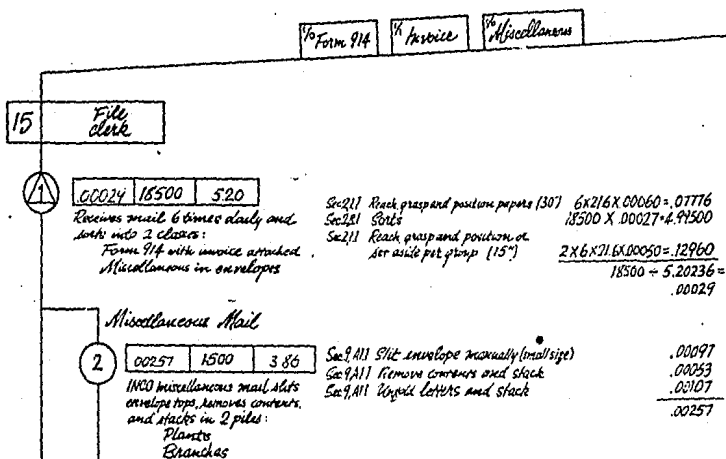 1/0 Form 914
1/1 Invoice
1/0 Miscellaneous
15 File clerk
1
.00024 18500 5.20
Receives mail 6 times daily and
sorts into 2 classes:
Form 914 with invoice attached
Miscellaneous in envelopes
Sec 211 Reach grasp and position papers (30") 6X21.6 X .00060 = .07776
Sec 281 Sorts 18500 X .00027 = 4.99500
Sec 211 Reach grasp and position or
set aside per group (15") 2X6X21.6X.00050 = .12960
18500 ÷ 5.20236 =
.00029
Miscellaneous Mail
2
.00257 1500 3.86
INCO miscellaneous mail slits
envelope tops, removes contents,
and stacks in 2 piles:
Plants
Branches
Sec 9, A11 Slit envelope manually (small size) .00097
Sec 9, A11 Remove contents and stack .00053
Sec 9, A11 Unfold letters and stack .00107
.00257